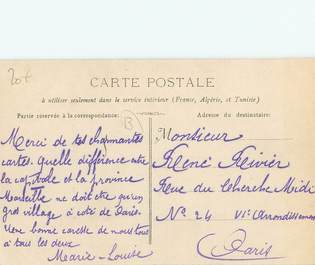 20€
CARTE POSTALE
à utiliser seulement dans le service intérieur (France, Algérie, et Tunisie)
Partie réservée à la correspondance:
Adresse du destinataire:
Merci de tes charmantes
cartes. Quelle différence entre
la capitale et la province
Marseille ne doit être qu'un
gros village à coté de Paris.
Une bonne caresse de nous tous
à tous les deux
Marie-Louise
Monsieur
René Rivier
Rue du Cherche Midi
No 24 VIe Arrondissement
Paris